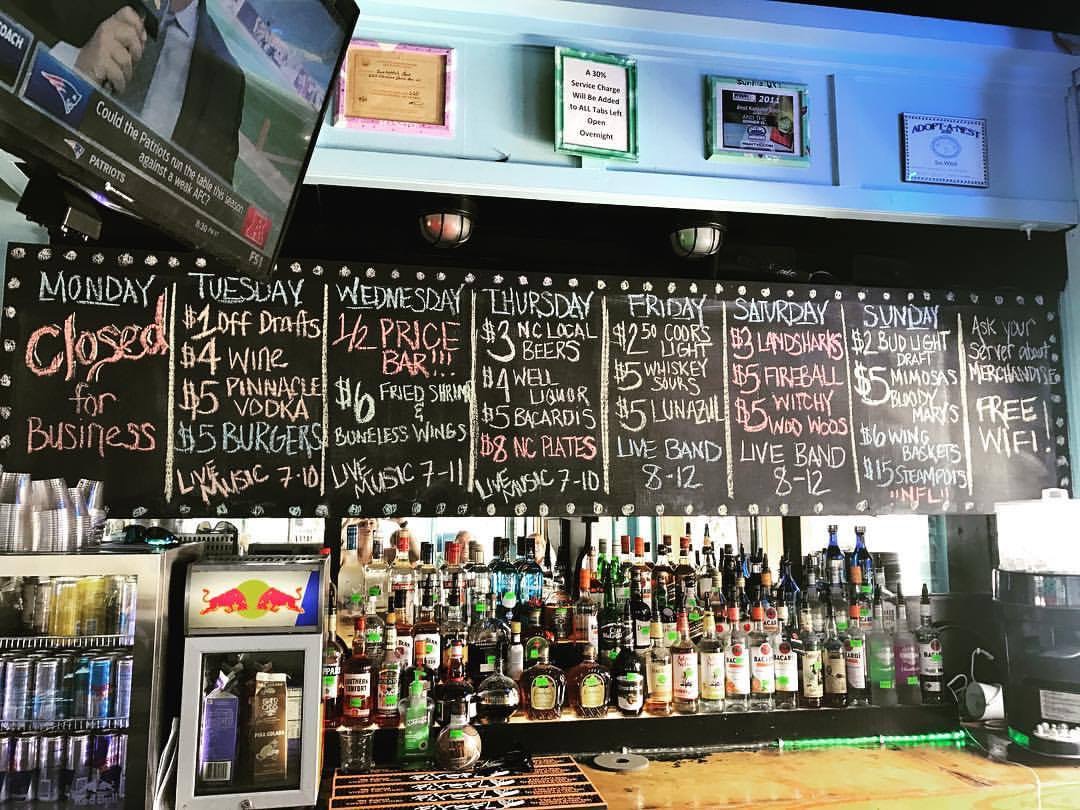 COACH
Could the Patriots run the table this season
against a weak AFC?
PATRIOTS
8:30
FS1
A 30%
Service Charge
Will Be Added
to ALL Tabs Left
Open
Overnight
2011
ADOPT-A-NEST
MONDAY
Closed
for
Business
TUESDAY
$1 off Drafts
$4 Wine
$5 PINNACLE
VODKA
$5 BURGERS
LIVE MUSIC 7-10
WEDNESDAY
1/2 PRICE
BAR!!!
$6 FRIED SHRIMP
&
BONELESS WINGS
LIVE MUSIC 7-11
THURSDAY
$3 NC LOCAL
BEERS
$4 WELL
LIQUOR
$5 BACARDIS
$8 NC PLATES
LIVE MUSIC 7-10
FRIDAY
$2.50 COORS
LIGHT
$5 WHISKEY
SOURS
$5 LUNAZUL
LIVE BAND
8-12
SATURDAY
$3 LANDSHARKS
$5 FIREBALL
$5 WITCHY
WOO WOOS
LIVE BAND
8-12
SUNDAY
$2 BUD LIGHT
DRAFT
$5 MIMOSAS
BLOODY
MARYS
$6 WING
BASKETS
$15 STEAMPOTS
"NFL"
Ask your
server about
MERCHANDISE
FREE
WIFI!
SOUTHERN
COMFORT
BACARDI
BACARDI
BACARDI
PINA COLADA